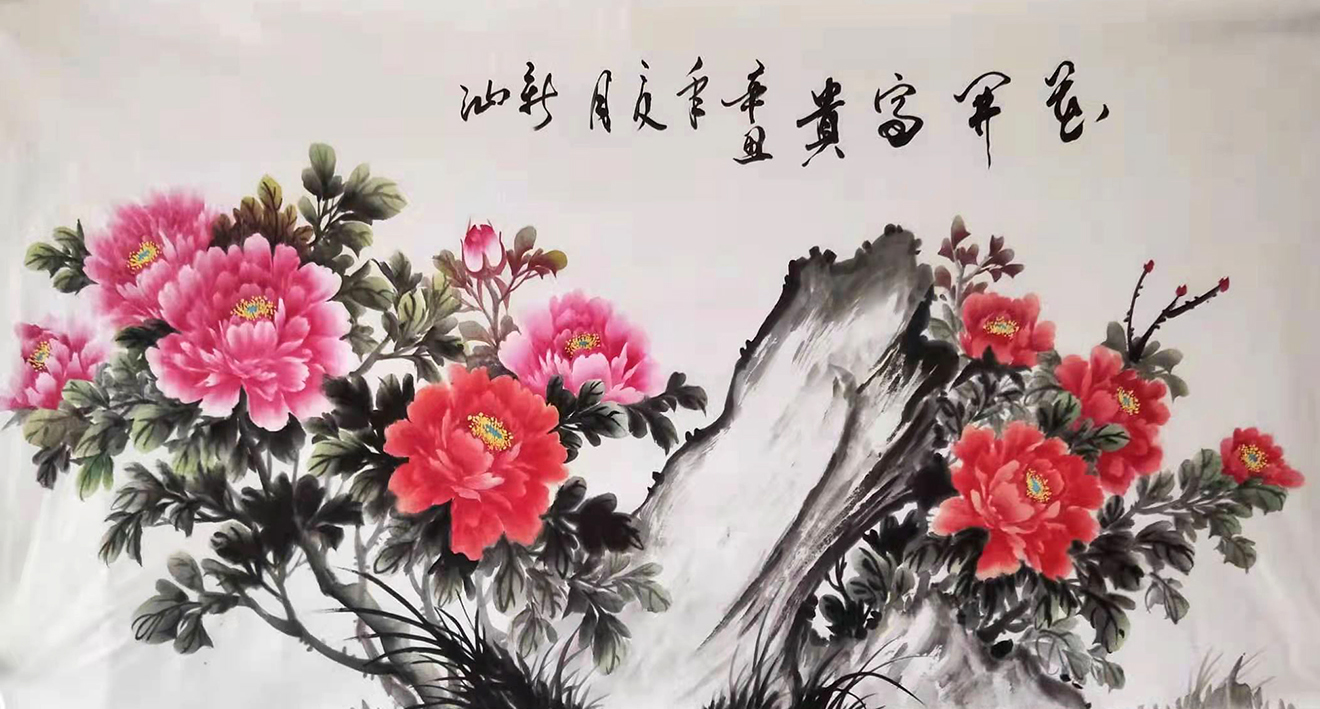 花開富貴辛丑年夏月新汕